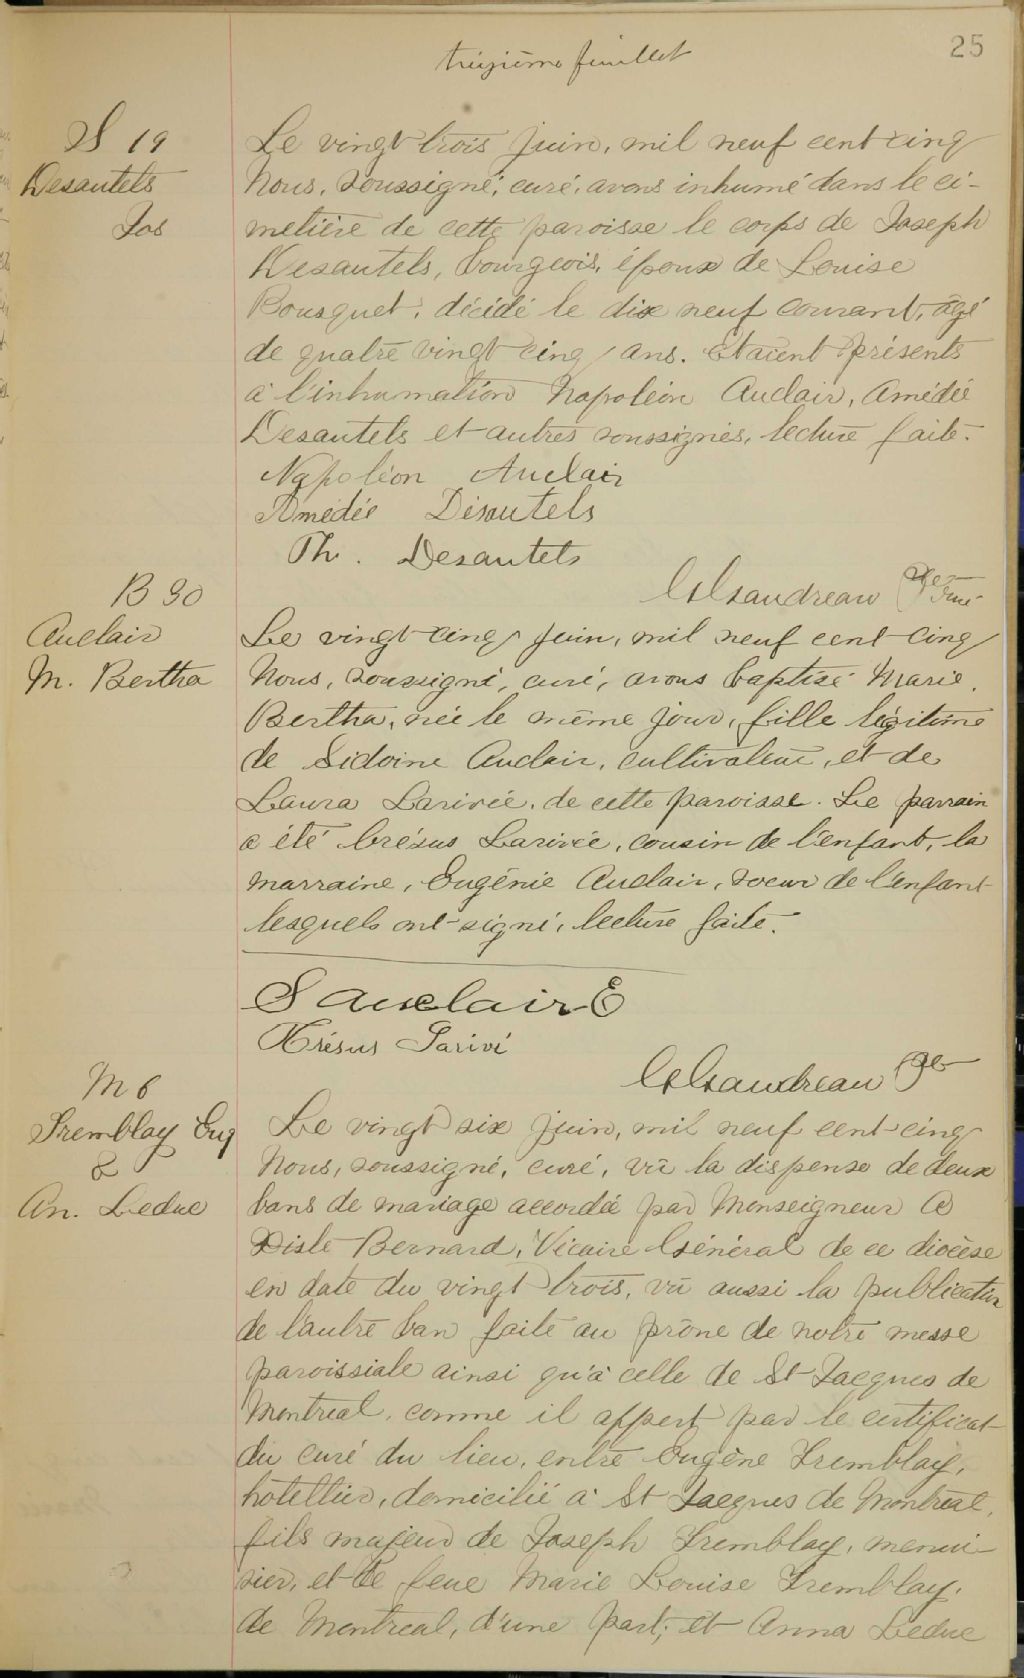 25
treizième feuillet
S 19
Desautels
Jos
Le vingt trois juin, mil neuf cent cinq
Nous, soussigné, curé, avons inhumé dans le ci-
metière de cette paroisse le corps de Joseph
Desautels, bourgeois, époux de Louise
Bousquet, décédé le dix neuf courant, âgé
de quatre vingt cinq ans. Etaient présents
à l'inhumation Napoléon Auclair, Amédée
Desautels et autres soussignés, lecture faite.
Napoléon Auclair
Amédée Désautels
Th. Desautels
Gaudreau Ptre curé
B 30
Auclair
M. Bertha
Le vingt cinq juin, mil neuf cent cinq
Nous, soussigné, curé, avons baptisé Marie
Bertha, née le même jour, fille légitime
de Sidoine Auclair, cultivateur, et de
Laura Larivée, de cette paroisse. Le parrain
a été Crésus Larivée, cousin de l'enfant, la
marraine, Eugénie Auclair, soeur de l'enfant
lesquels ont signé, lecture faite.
S Auclair E
Krésus Larivé
Gaudreau Ptre
M 6
Tremblay Eug
&
An. Leduc
Le vingt six juin, mil neuf cent cinq
Nous, soussigné, curé, vu la dispense de deux
bans de mariage accordée par Monseigneur A
Disle Bernard, Vicaire Général de ce diocèse
en date du vingt trois, vu aussi la publication
de l'autre ban faite au prône de notre messe
paroissiale ainsi qu'à celle de St Jacques de
Montréal, comme il appert par le certificat
du curé du lieu, entre Eugène Tremblay,
hôtellier, domicilié à St Jacques de Montréal,
fils majeur de Joseph Tremblay, menui-
sier, et de feue Marie Louise Tremblay,
de Montreal, d'une part; et Anna Leduc